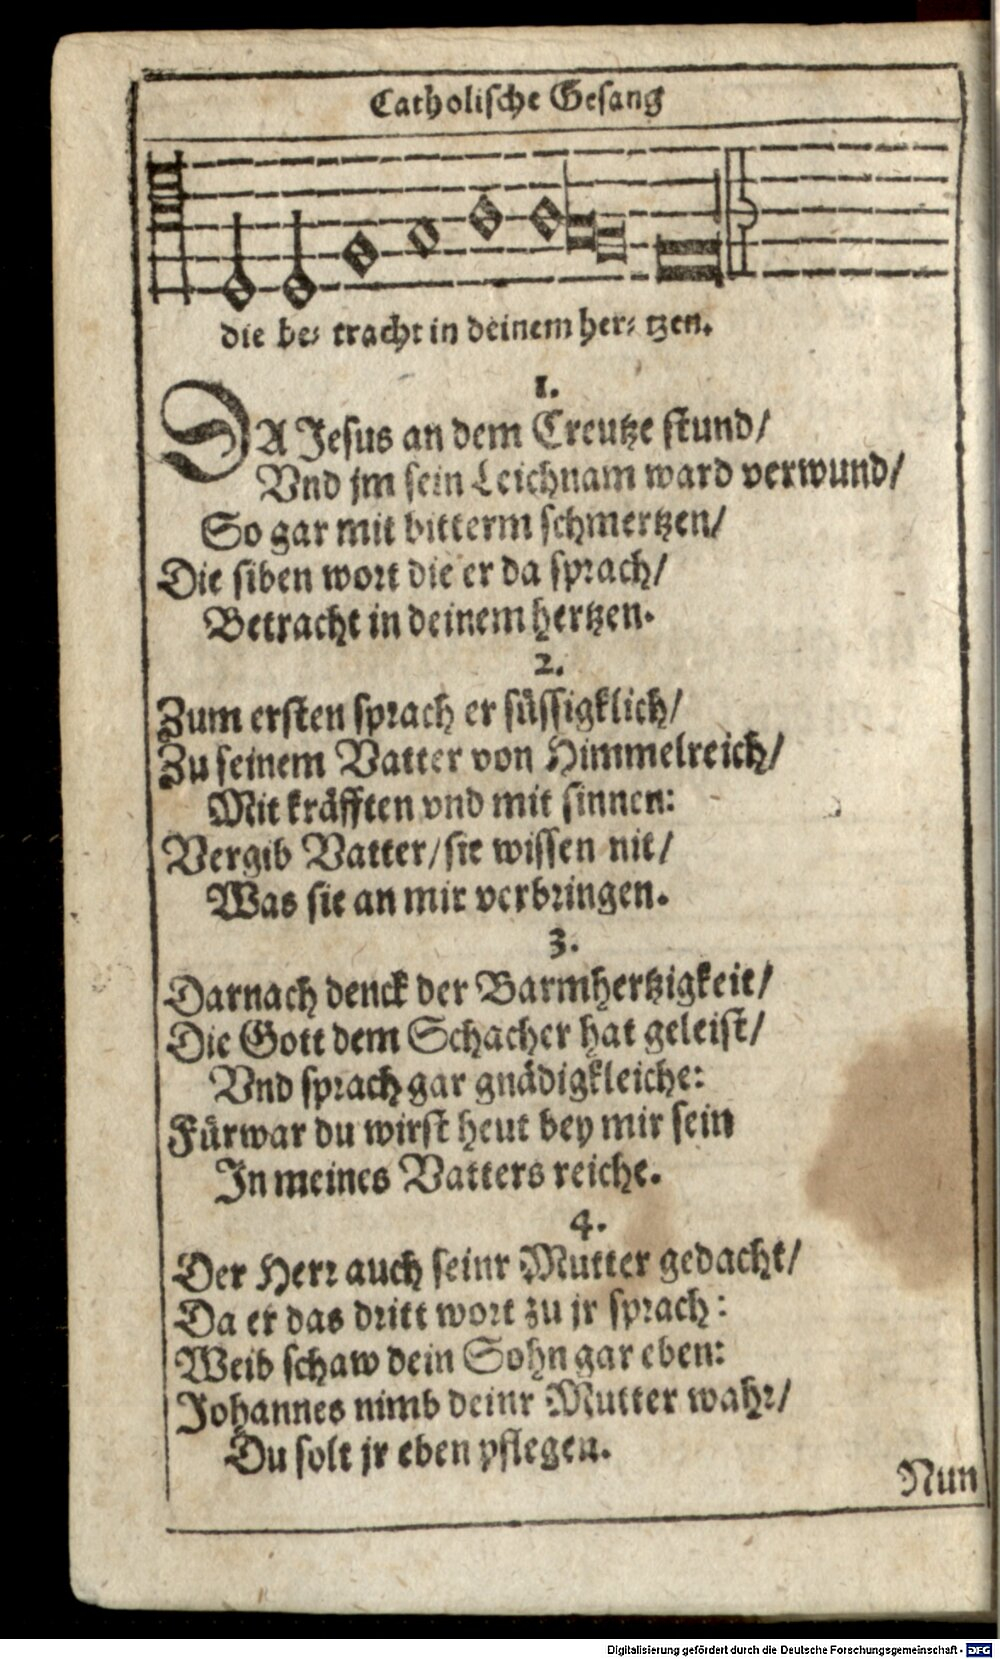 Catholische Gesang
die be- tracht in deinem her- tzen.
1.
DA Jesus an dem Creutze stund/
Vnd jm sein Leichnam ward verwund/
So gar mit bitterm schmertzen/
Die siben wort die er da sprach/
Betracht in deinem hertzen.
2.
Zum ersten sprach er süssigklich/
Zu seinem Vatter von Himmelreich/
Mit kräfften vnd mit sinnen:
Vergib Vatter/sie wissen nit/
Was sie an mir verbringen.
3.
Darnach denck der Barmhertzigkeit/
Die Gott dem Schacher hat geleist/
Vnd sprach gar gnädigkleiche:
Fürwar du wirst heut bey mir sein
In meines Vatters reiche.
4.
Der Herr auch seinr Mutter gedacht/
Da er das dritt wort zu jr sprach:
Weib schaw dein Sohn gar eben:
Johannes nimb deinr Mutter wahr/
Du solt jr eben pflegen.
Nun
Digitalisierung gefördert durch die Deutsche Forschungsgemeinschaft - DFG